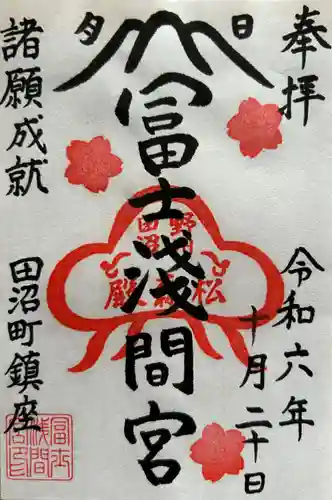 奉拝
令和六年
十月二十日
日
夕
富士浅間宮
諸願成就
田沼町鎮座
富士
浅間
宮印